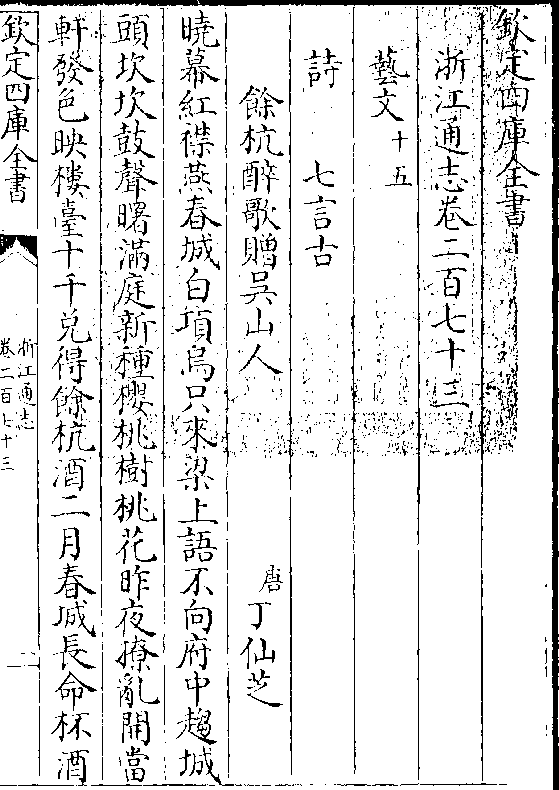 欽定四庫全書
浙江通志卷二百七十三
藝文十五
詩　七言古
餘杭醉歌贈吳山人　唐丁仙芝
曉幕紅襟燕春城白項烏只來梁上語不向府中趨城
頭坎坎鼓聲曙滿庭新種櫻桃樹桃花昨夜撩亂開當
軒發色映樓臺十千兌得餘杭酒二月春城長命杯酒
欽定四庫全書
浙江通志
卷二百七十三
一